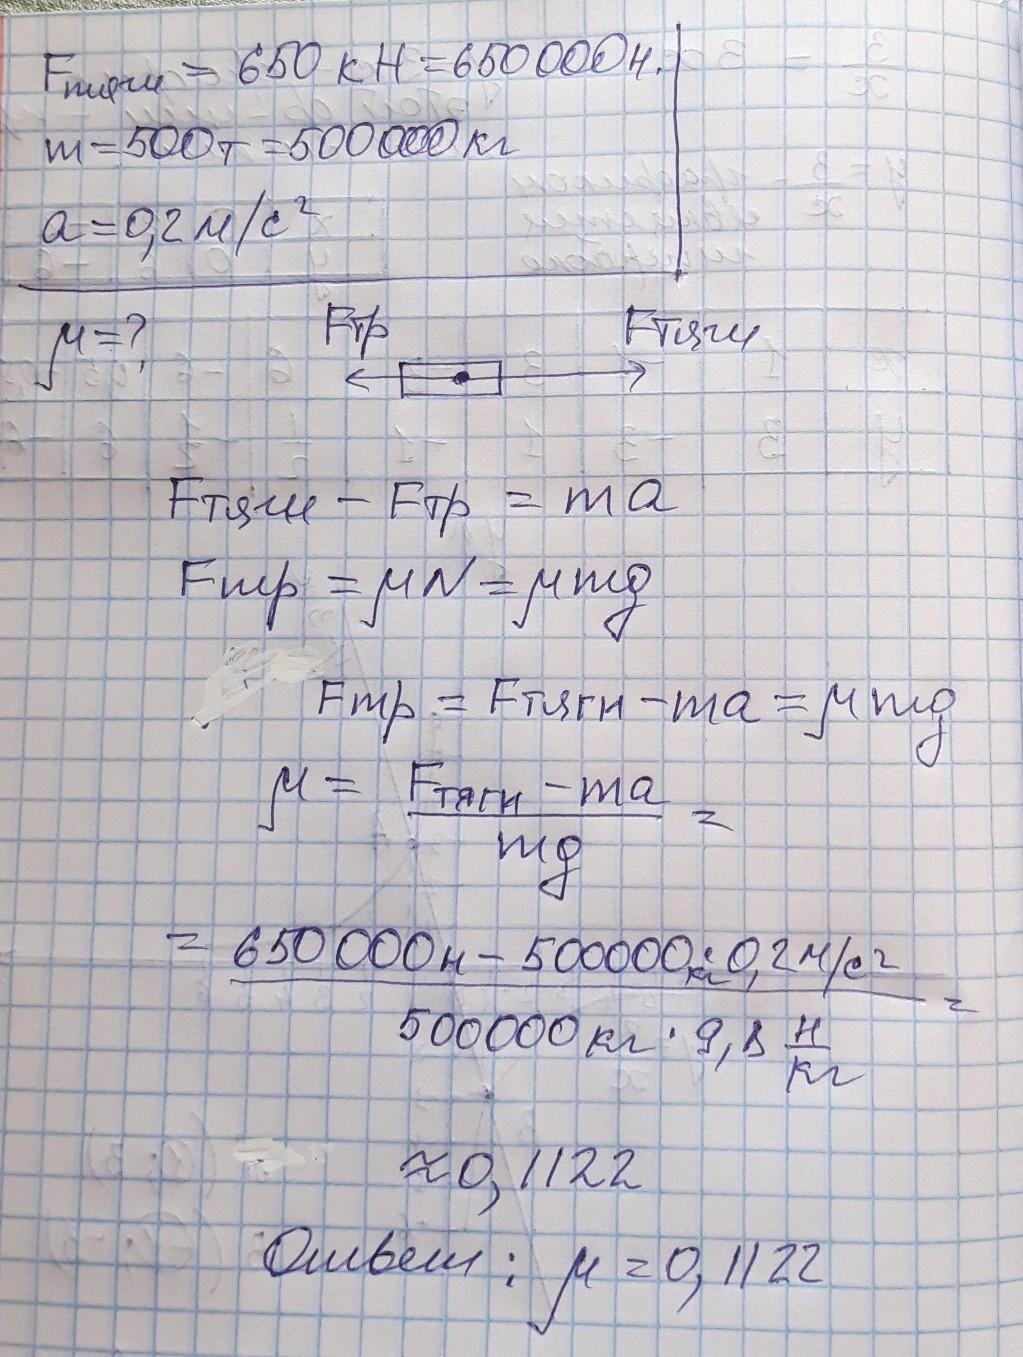 Fтяги = 650 кН = 650000н.
m = 500т = 500000кг
a = 0,2 м/с²
μ = ?
Fтр Fтяги
Fтяги - Fтр = ma
Fтр = μN = μmg
Fтр = Fтяги - ma = μmg
μ = (Fтяги - ma)/mg =
= (650 000н - 500000кг·0,2 м/с²)/(500000кг · 9,8 Н/кг) =
≈0,1122
Ответ: μ = 0,1122